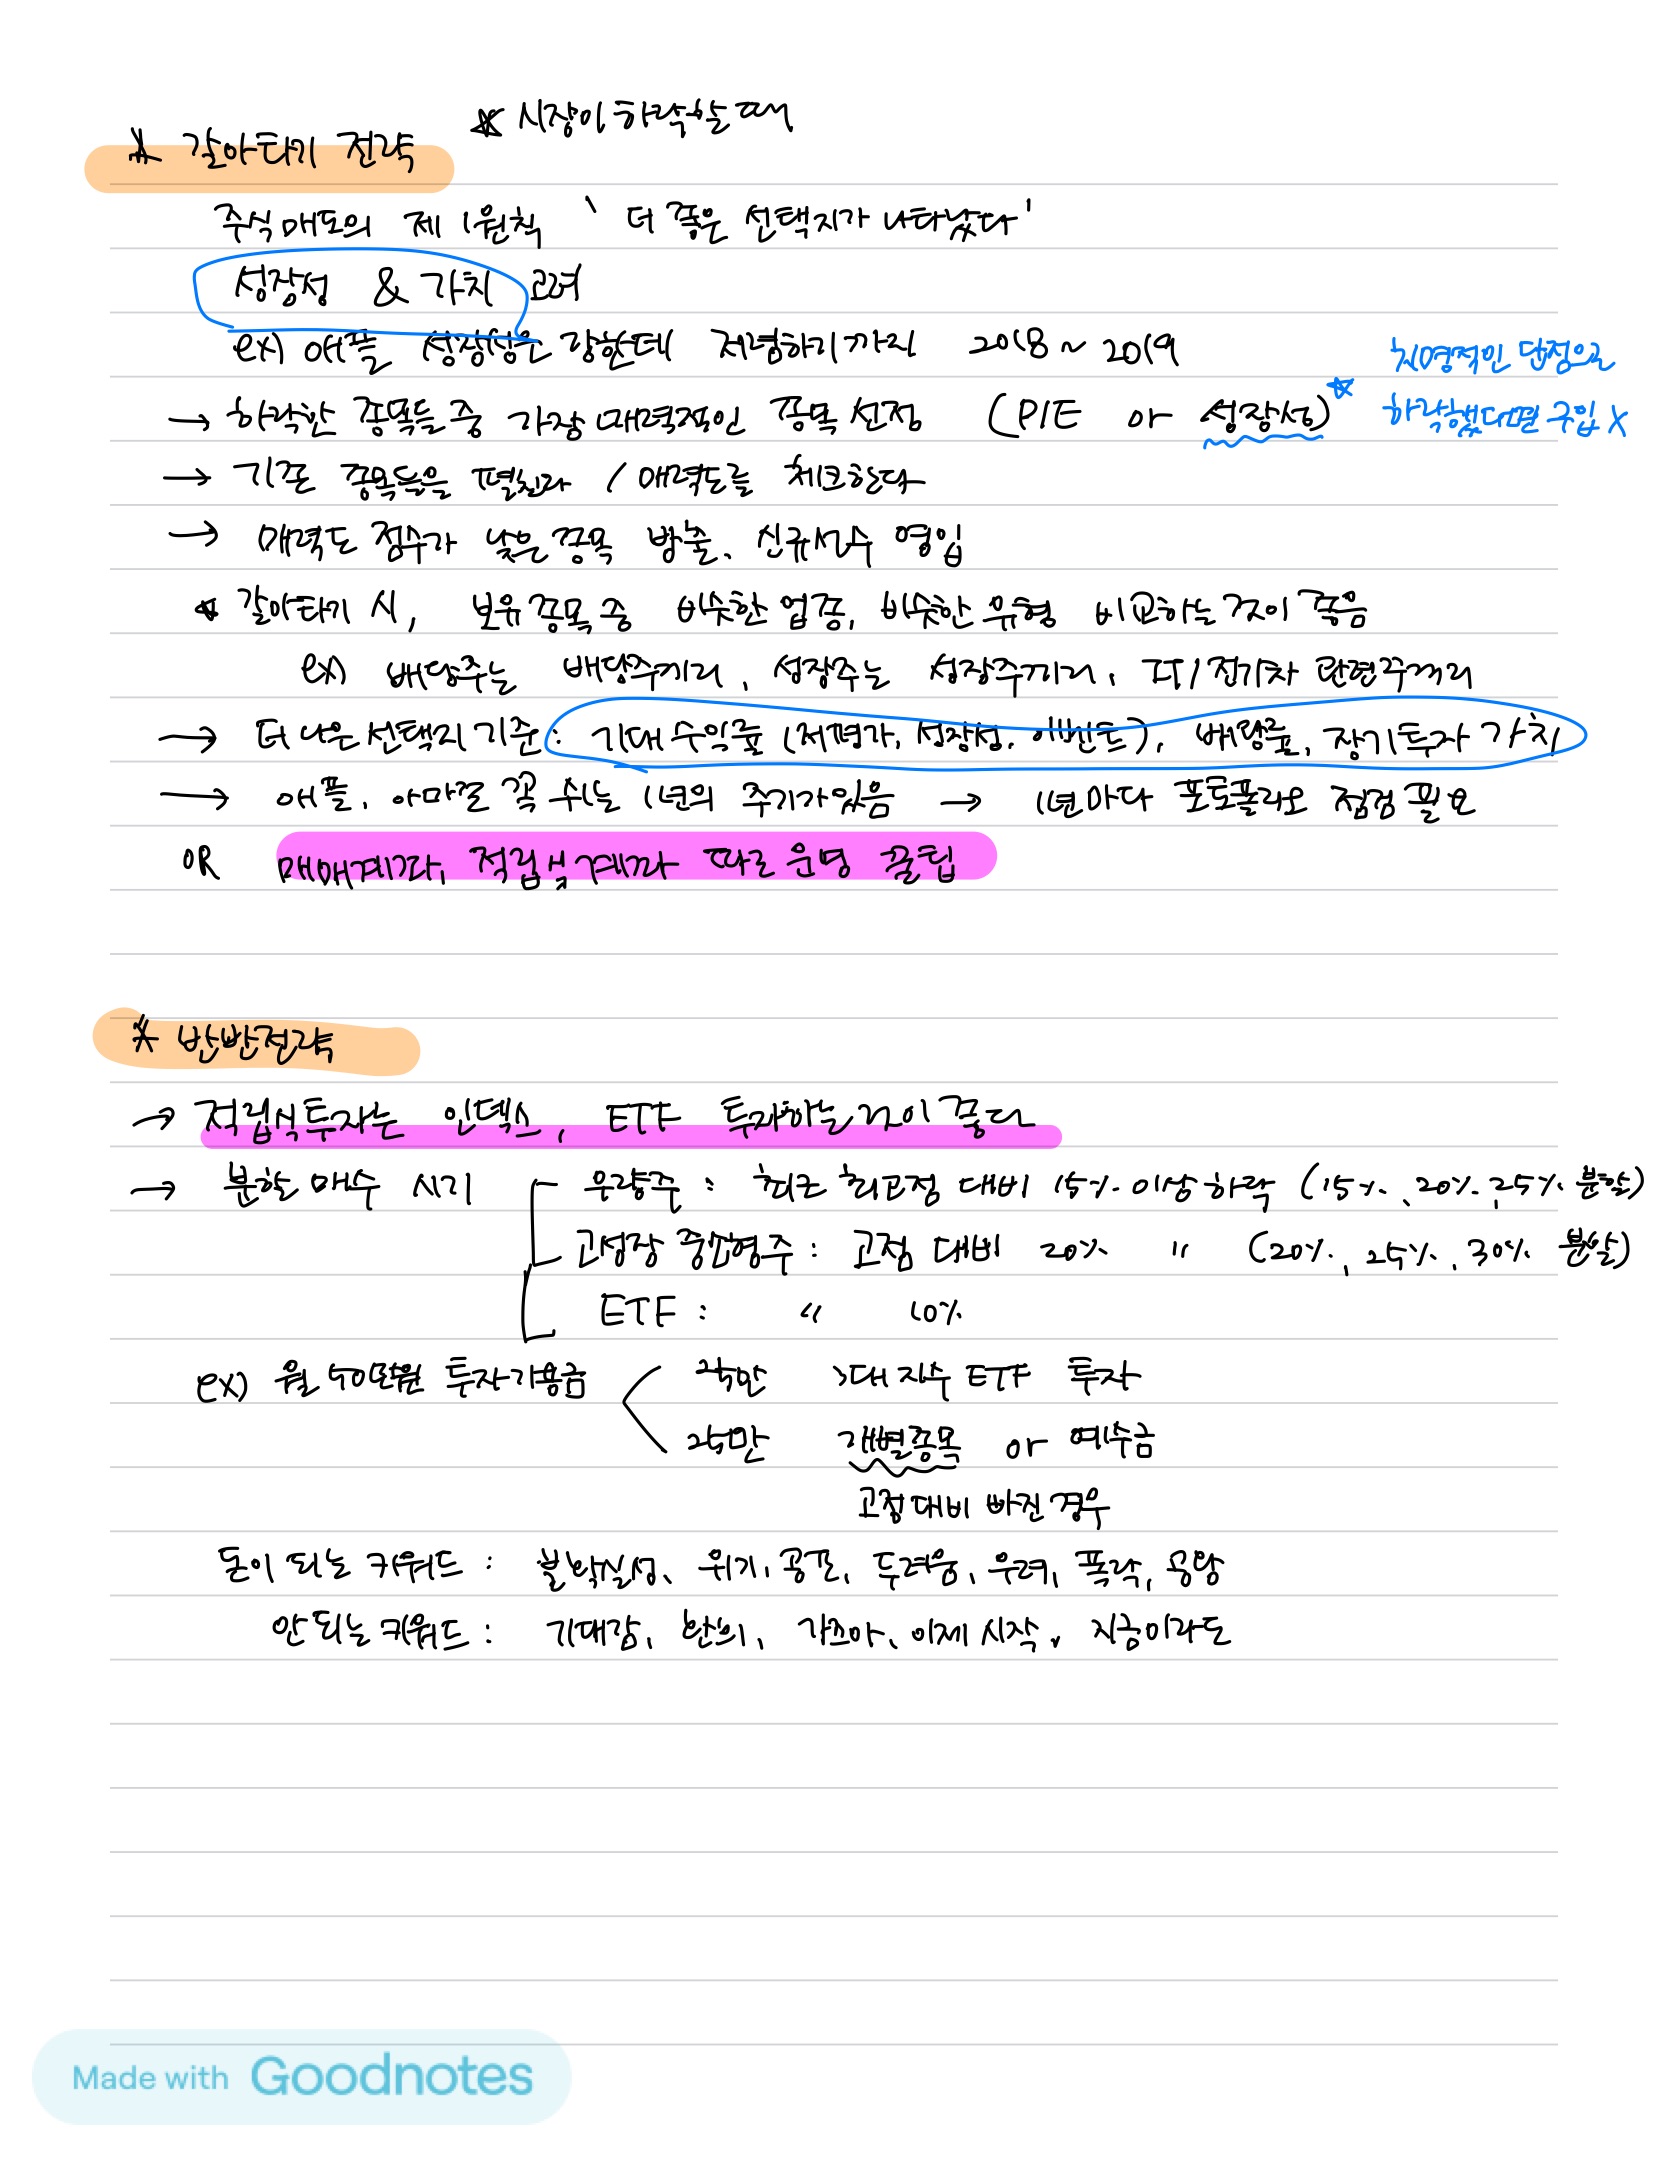 ☆ 시장이 하락할 때
* 갈아타기 전략
주식매도의 제 1원칙 ' 더 좋은 선택지가 나타났다'
성장성 & 가치 고려
ex) 애플 성장성은 강한데 저렴하기까지 2018 ~ 2019
치명적인 단점으로
→ 하락한 종목들 중 가장 매력적인 종목 선정 (P/E or 성장성)☆ 하락했다면 구입 X
→ 기존 종목들을 펼친다 / 매력도를 체크한다
→ 매력도 점수가 낮은종목 방출, 신규선수 영입
* 갈아타기 시, 보유종목중 비슷한 업종, 비슷한 유형 비교하는것이 좋음
ex) 배당주는 배당주끼리, 성장주는 성장주끼리, IT/전기차 관련주끼리
→ 더 나은 선택지 기준: 기대 수익률 (저평가, 성장성, 이벤트), 배당률, 장기투자 가치
→ 애플, 아마존 꼭 쉬는 1년의 주기가있음 → 1년마다 포토폴리오 점검 필요
OR 매매계좌, 적립식계좌 따로 운영 꿀팁
* 반반전략
→ 적립식투자는 인덱스, ETF 투자하는것이 좋다
→ 분할 매수 시기 우량주 : 최근 최고점 대비 15% 이상 하락 (15%, 20%, 25% 분할)
고성장 중소형주 : 고점 대비 20% " (20%, 25%, 30% 분할)
ETF : " 10%
ex) 월 50만원 투자가용금 25만 3대 지수 ETF 투자
25만 개별종목 or 예수금
고점대비 빠진경우
돈이 되는 키워드 : 불확실성, 위기, 공포, 두려움, 우려, 폭락, 공황
안 되는 키워드 : 기대감, 환희, 가즈아, 이제 시작, 지금이라도
Made with Goodnotes